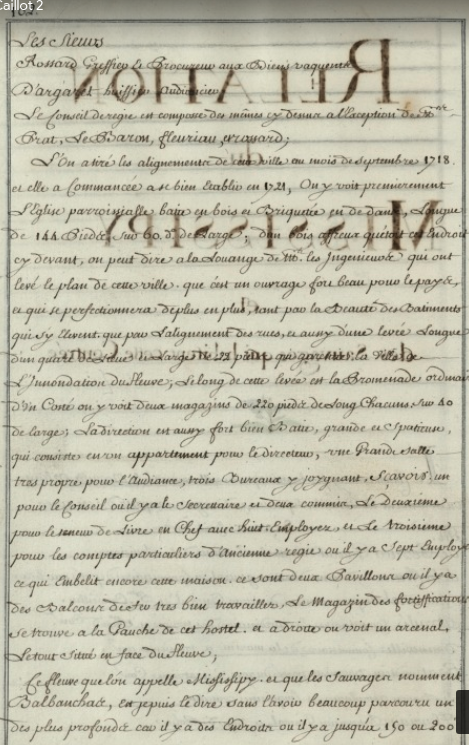 Caillot 2
Les Sieurs
Rossard Greffier et Procureur aux Biens vaquents
D'argaret huissier Audiencier
Le Conseil de regie en composé des mêmes cy denus a l'Exception de Mrs.
Brat, Le Baron, fleuriau, et rossard;
L'On a tiré les alignements de cette ville au mois de septembre 1718.
et elle a Commancée a se bien Etablir en 1721, On y voit premierement
l'Eglise parroissialle batie en bois et Briquetée en dedans, Longue
de 144 Pieds sur 60. d. de Large; d'un bois affreux qu'étoit cet Endroit
cy devant, on peut dire a la Louange de M. les Ingenieurs qui ont
levé le plan de cette ville. que c'est un ouvrage fort beau pour le païs,
et qui se perfectionnera de plus en plus, tant par la Beauté des Batiments
qui s'y Elevent. que par l'alignement des rues, et aussy d'une levée Longue
d'un quart de Lieue et Large de 22 pieds qui garentit la Ville de
L'Innondation du fleuve; Le long de cette levée est la Promenade ordinair
d'Un Coné on y voit deux magazins de 220 pieds de Long Chacuns, sur 40
de large; La direction est aussy fort bien Batie, grande et Spatieuse,
qui consiste en un appartement pour le directeur, une Grande Salle
tres propre pour l'Audiance, trois Bureaux y joygnant, Scavoir, un
pour le Conseil ou il y a le Secretaire et deux commis, Le Deuxième
pour le teneur de Livre en Chef avec huit Employez et Le troisième
pour les comptes particuliers d'Ancienne regie ou il y a Sept Employ
ce qui Embelit encore cette maison. ce sont deux Pavillons ou il y a
des Balcons de fer tres bien travaillez, Le Magazin des fortiffications
se trouve a la Gauche de cet hostel. et a droite on voit un arcenal,
Le tout Situé en face du fleuve,
Ce fleuve que l'on appelle Missisipy. et que les Sauvages nomment
Balbancha, en je puis le dire sans l'avoir beaucoup parcouru un
des plus profonds car il y a des Endroits ou il y a jusqu'a 150 ou 200
RELATION
DU
MISSISSIPI